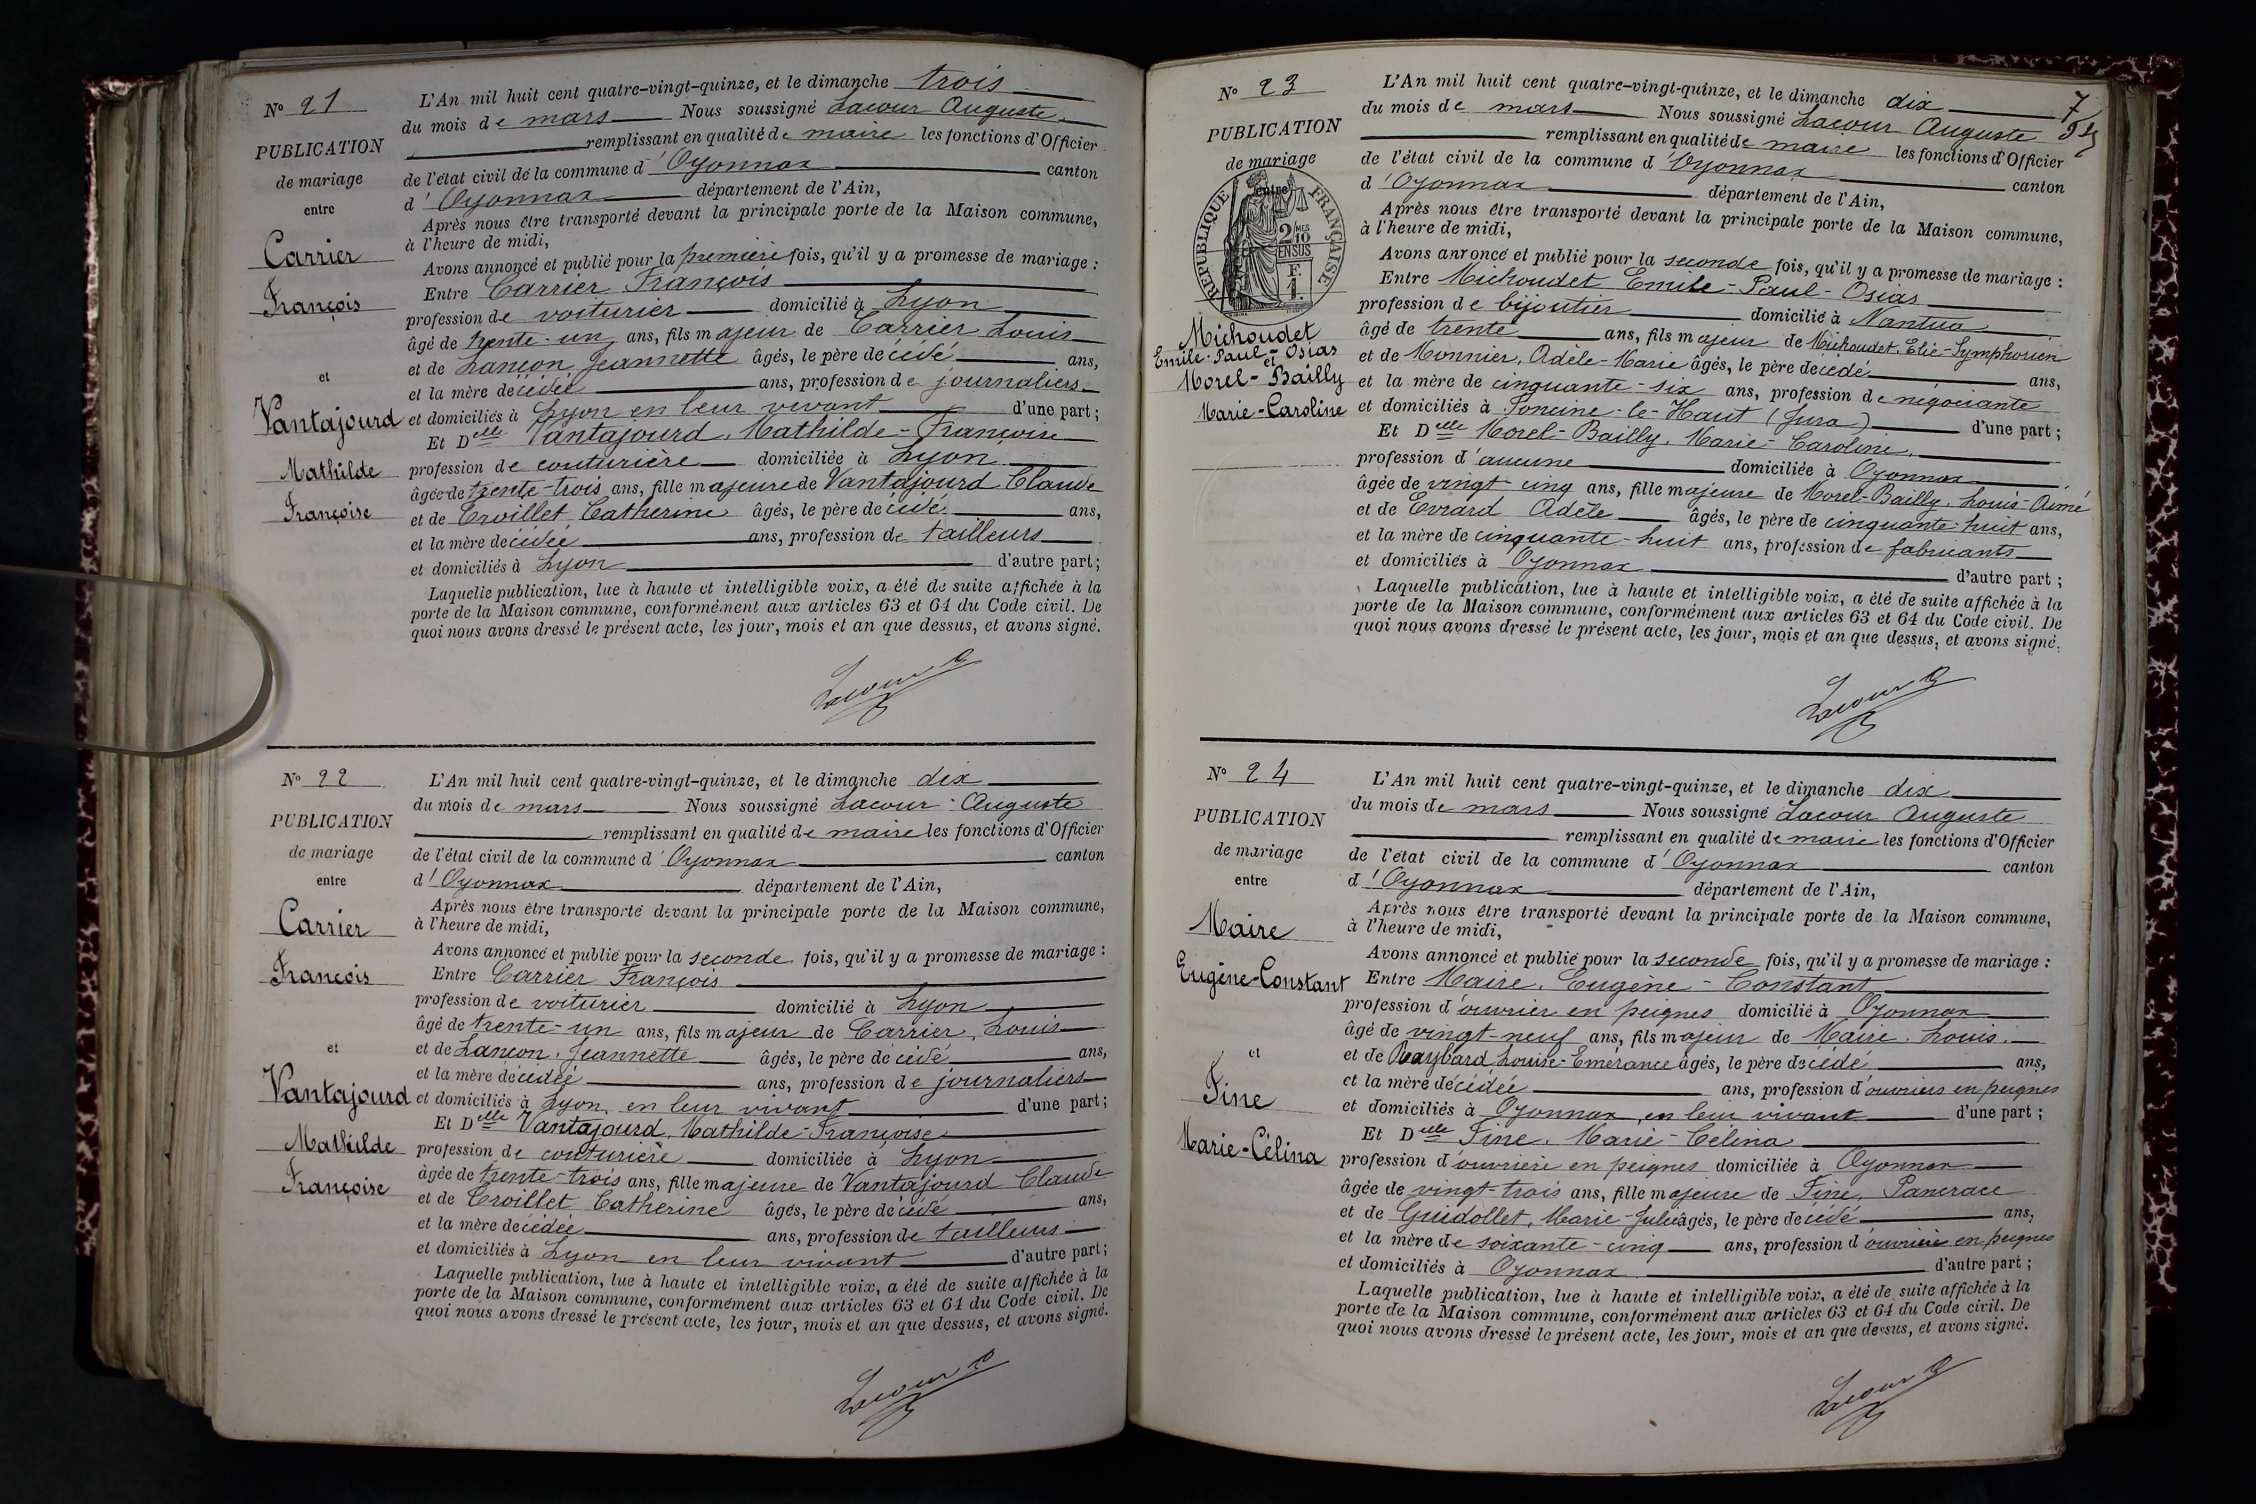 N° 21
PUBLICATION
de mariage
entre
Carrier
François
et
Vantajourd
Mathilde
Françoise
L'An mil huit cent quatre-vingt-quinze, et le dimanche trois
du mois de mars Nous soussigné Lacour Auguste
remplissant en qualité de maire les fonctions d'Officier
de l'état civil de la commune d'Oyonnax canton
d'Oyonnax département de l'Ain,
Après nous être transporté devant la principale porte de la Maison commune,
à l'heure de midi,
Avons annoncé et publié pour la première fois, qu'il y a promesse de mariage :
Entre Carrier François
profession de voiturier domicilié à Lyon
âgé de trente-un ans, fils majeur de Carrier Louis
et de Lançon Jeannette âgés, le père décédé ans,
et la mère décédée ans, profession de journaliers
et domiciliés à Lyon en leur vivant d'une part ;
Et Delle Vantajourd, Mathilde-Françoise
profession de couturière domiciliée à Lyon
âgée de trente-trois ans, fille majeure de Vantajourd Claude
et de Croillet Catherine âgés, le père décédé ans,
et la mère décédée ans, profession de tailleurs
et domiciliés à Lyon d'autre part ;
Laquelle publication, lue à haute et intelligible voix, a été de suite affichée à la
porte de la Maison commune, conformément aux articles 63 et 64 du Code civil. De
quoi nous avons dressé le présent acte, les jour, mois et an que dessus, et avons signé.
Lacour A
N° 22
PUBLICATION
de mariage
entre
Carrier
François
et
Vantajourd
Mathilde
Françoise
L'An mil huit cent quatre-vingt-quinze, et le dimanche dix
du mois de mars Nous soussigné Lacour Auguste
remplissant en qualité de maire les fonctions d'Officier
de l'état civil de la commune d'Oyonnax canton
d'Oyonnax département de l'Ain,
Après nous être transporté devant la principale porte de la Maison commune,
à l'heure de midi,
Avons annoncé et publié pour la seconde fois, qu'il y a promesse de mariage :
Entre Carrier François
profession de voiturier domicilié à Lyon
âgé de trente-un ans, fils majeur de Carrier, Louis
et de Lançon, Jeannette âgés, le père décédé ans,
et la mère décédée ans, profession de journaliers
et domiciliés à Lyon, en leur vivant d'une part ;
Et Delle Vantajourd, Mathilde-Françoise
profession de couturière domiciliée à Lyon
âgée de trente-trois ans, fille majeure de Vantajourd Claude
et de Croillet Catherine âgés, le père décédé ans,
et la mère décédée ans, profession de tailleurs
et domiciliés à Lyon en leur vivant d'autre part ;
Laquelle publication, lue à haute et intelligible voix, a été de suite affichée à la
porte de la Maison commune, conformément aux articles 63 et 64 du Code civil. De
quoi nous avons dressé le présent acte, les jour, mois et an que dessus, et avons signé.
Lacour A
7
N° 23
PUBLICATION
de mariage
entre
REPUBLIQUE FRANÇAISE
2 MES
10
EN SUS
F.
1.
Michoudet
Emile-Paul-Osias
et
Morel-Bailly
Marie-Caroline
L'An mil huit cent quatre-vingt-quinze, et le dimanche dix
du mois de mars Nous soussigné Lacour Auguste
remplissant en qualité de maire les fonctions d'Officier
de l'état civil de la commune d'Oyonnax canton
d'Oyonnax département de l'Ain,
Après nous être transporté devant la principale porte de la Maison commune,
à l'heure de midi,
Avons annoncé et publié pour la seconde fois, qu'il y a promesse de mariage :
Entre Michoudet Emile-Paul-Osias
profession de bijoutier domicilié à Nantua
âgé de trente ans, fils majeur de Michoudet, Elie-Symphorien
et de Monnier, Adèle-Marie âgés, le père décédé ans,
et la mère de cinquante-six ans, profession de négociante
et domiciliés à Foncine-le-Haut (Jura) d'une part ;
Et Delle Morel-Bailly, Marie-Caroline,
profession d'aucune domiciliée à Oyonnax
âgée de vingt-cinq ans, fille majeure de Morel-Bailly, Louis-Aimé
et de Evrard Adèle âgés, le père de cinquante-huit ans,
et la mère de cinquante-huit ans, profession de fabricants
et domiciliés à Oyonnax d'autre part ;
Laquelle publication, lue à haute et intelligible voix, a été de suite affichée à la
porte de la Maison commune, conformément aux articles 63 et 64 du Code civil. De
quoi nous avons dressé le présent acte, les jour, mois et an que dessus, et avons signé.
Lacour A
N° 24
PUBLICATION
de mariage
entre
Maire
Eugène-Constant
et
Fine
Marie-Célina
L'An mil huit cent quatre-vingt-quinze, et le dimanche dix
du mois de mars Nous soussigné Lacour Auguste
remplissant en qualité de maire les fonctions d'Officier
de l'état civil de la commune d'Oyonnax canton
d'Oyonnax département de l'Ain,
Après nous être transporté devant la principale porte de la Maison commune,
à l'heure de midi,
Avons annoncé et publié pour la seconde fois, qu'il y a promesse de mariage :
Entre Maire, Eugène-Constant
profession d'ouvrier en peignes domicilié à Oyonnax
âgé de vingt-neuf ans, fils majeur de Maire, Louis,
et de Raybard Louise-Emérance âgés, le père décédé ans,
et la mère décédée ans, profession d'ouvriers en peignes
et domiciliés à Oyonnax, en leur vivant d'une part ;
Et Delle Fine, Marie-Célina
profession d'ouvrière en peignes domiciliée à Oyonnax
âgée de vingt-trois ans, fille majeure de Fine, Pancrace
et de Guidollet, Marie-Julie âgés, le père décédé ans,
et la mère de soixante-cinq ans, profession d'ouvrière en peignes
et domiciliés à Oyonnax d'autre part ;
Laquelle publication, lue à haute et intelligible voix, a été de suite affichée à la
porte de la Maison commune, conformément aux articles 63 et 64 du Code civil. De
quoi nous avons dressé le présent acte, les jour, mois et an que dessus, et avons signé.
Lacour A